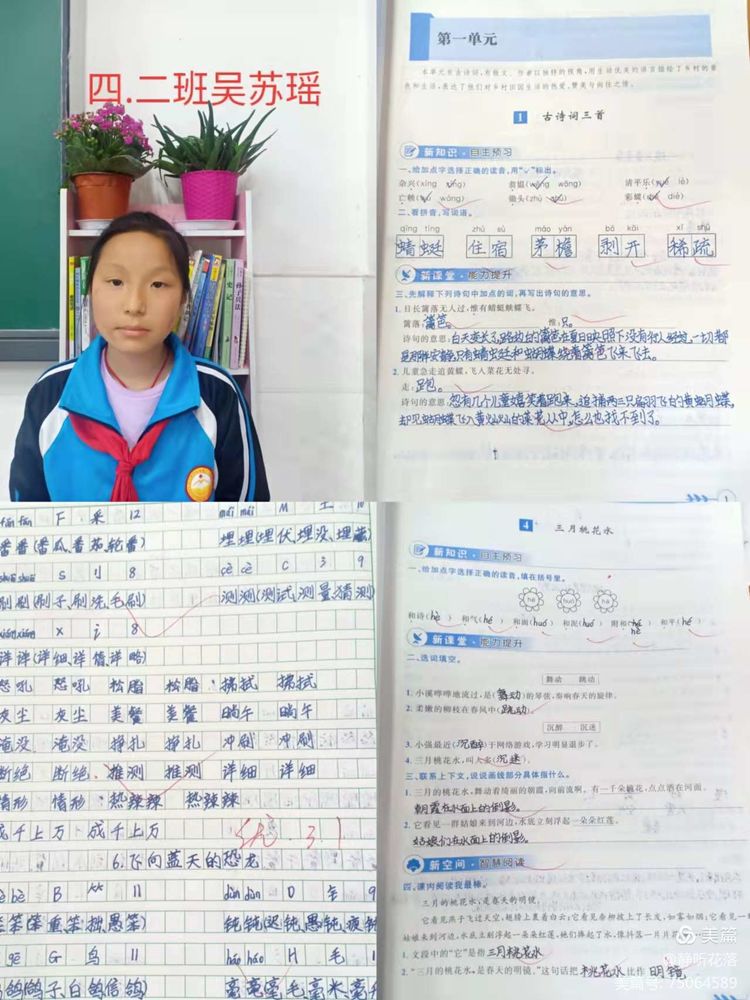 四.二班吴苏瑶
史记
孙子兵法
第一单元
本单元有古诗词,有散文。作者以独特的视角,用生动优美的语言描绘了乡村的景
色和生活,表达了他们对乡村田园生活的热爱、赞美与向往之情。
1 古诗词三首
新知识·自主预习
一、给加点字选择正确的读音,用“√”标出。
杂兴(xīng xìng) 翁媪(wēng wōng) 清平乐(yuè lè)
亡赖(wú wáng) 锄头(zhù chú) 彩蝶(dié)
二、看拼音,写词语。
qīng tíng zhù sù máo yán bō kāi xī shū
蜻蜓 住宿 茅檐 剥开 稀疏
新课堂·能力提升
三、先解释下列诗句中加点的词,再写出诗句的意思。
1. 日长篱落无人过,惟有蜻蜓蛱蝶飞。
篱落:篱笆。 惟:只。
诗句的意思:白天变长了,路边的篱笆在夏日
只有蜻蜓和蝴蝶绕着篱笆飞来飞去。
2. 儿童急走追黄蝶,飞入菜花无处寻。
走:
诗句的意思:忽有几个儿童嬉笑着跑来,追捕两三只扇羽飞的黄蝴蝶,
却见蝴蝶飞入黄灿灿的菜花丛中,怎么也找不到了。
1
fān fān F 采 12
番番(番瓜、番茄、轮番)
shuā shuā S 刂 8
刷刷(刷子、刷洗、毛刷)
xiáng xiáng X 讠 8
详详(详细、详情、详略)
怒吼 怒吼 松脂 松脂 拂拭 拂拭
灰尘 灰尘 美餐 美餐 晌午 晌午
淹没 淹没 挣扎 挣扎 冲刷 冲刷
断绝 断绝 推测 推测 详细 详细
情形 情形 热辣辣 热辣辣
成千上万 成千上万
优 3.1
6.飞向蓝天的恐龙
bèn B ⺮ 11
笨笨(笨重、笨拙、愚笨)
gē G 鸟 11
鸽鸽(鸽子、白鸽、信鸽)
mái mái M 土 10
埋埋(埋伏、埋没、埋藏)
cè cè C 氵 9
测测(测试、测量、猜测)
dùn dùn D 钅 9
钝钝(迟钝、愚钝、
háo háo H 毛 11
毫毫(毫毛、毫米、毫
4 三月桃花水
新知识·自主预习
一、给加点字选择正确的读音,填在括号里。
hé huó hè
和诗(hè) 和气(hé) 和面(huó) 和泥(huó) 附和(hè) 和平(hé)
新课堂·能力提升
二、选词填空。
舞动 跳动
1. 小溪哗哗地流过,是(舞动)的琴弦,奏响春天的旋律。
2. 柔嫩的柳枝在春风中(跳动)。
沉醉 沉迷
3. 小强最近(沉醉)于网络游戏,学习明显退步了。
4. 三月桃花水,叫人(沉迷)。
三、联系上下文,说说画线部分具体指什么。
1. 三月的桃花水,舞动着绮丽的朝霞,向前流啊。有一千朵桃花,点点洒在河面。
朝霞在水面上的倒影。
2. 它看见一群姑娘来到河边,水底立刻浮起一朵朵红莲。
姑娘们在水面上的倒影。
新空间·智慧阅读
四、课内阅读我最棒。
三月的桃花水,是春天的明镜。
它看见燕子飞过天空,翅膀上裹着白云;它看见垂柳披上了长发,如雾如烟;它看见一
姑娘来到河边,水底立刻浮起一朵朵红莲,她们捧起了水,像抖落一片片花
1. 文段中的“它”是指三月桃花水
2. “三月的桃花水,是春天的明镜。”这句话把桃花水比作明镜
美篇
@静听花落
美篇号:75064589